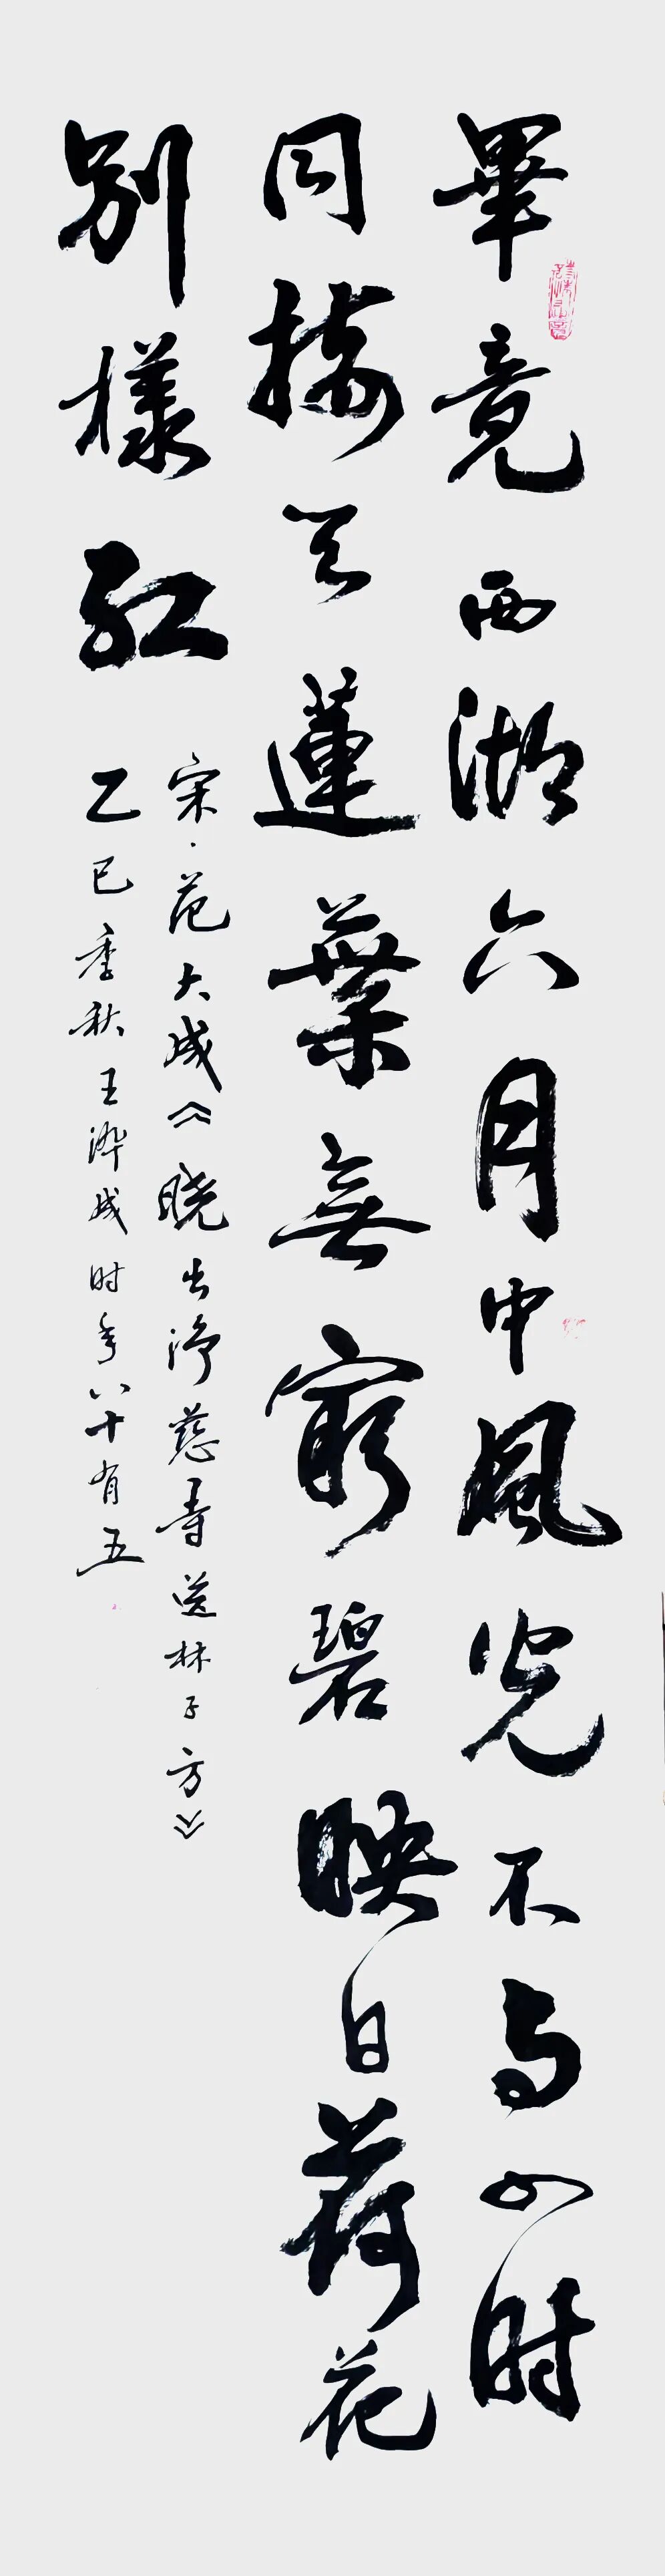 畢竟西湖六月中風光不与四时
同接天蓮葉無窮碧映日荷花
别樣红
宋·范大成《晓出净慈寺送林子方》
乙巳季秋 王成时年八十有五